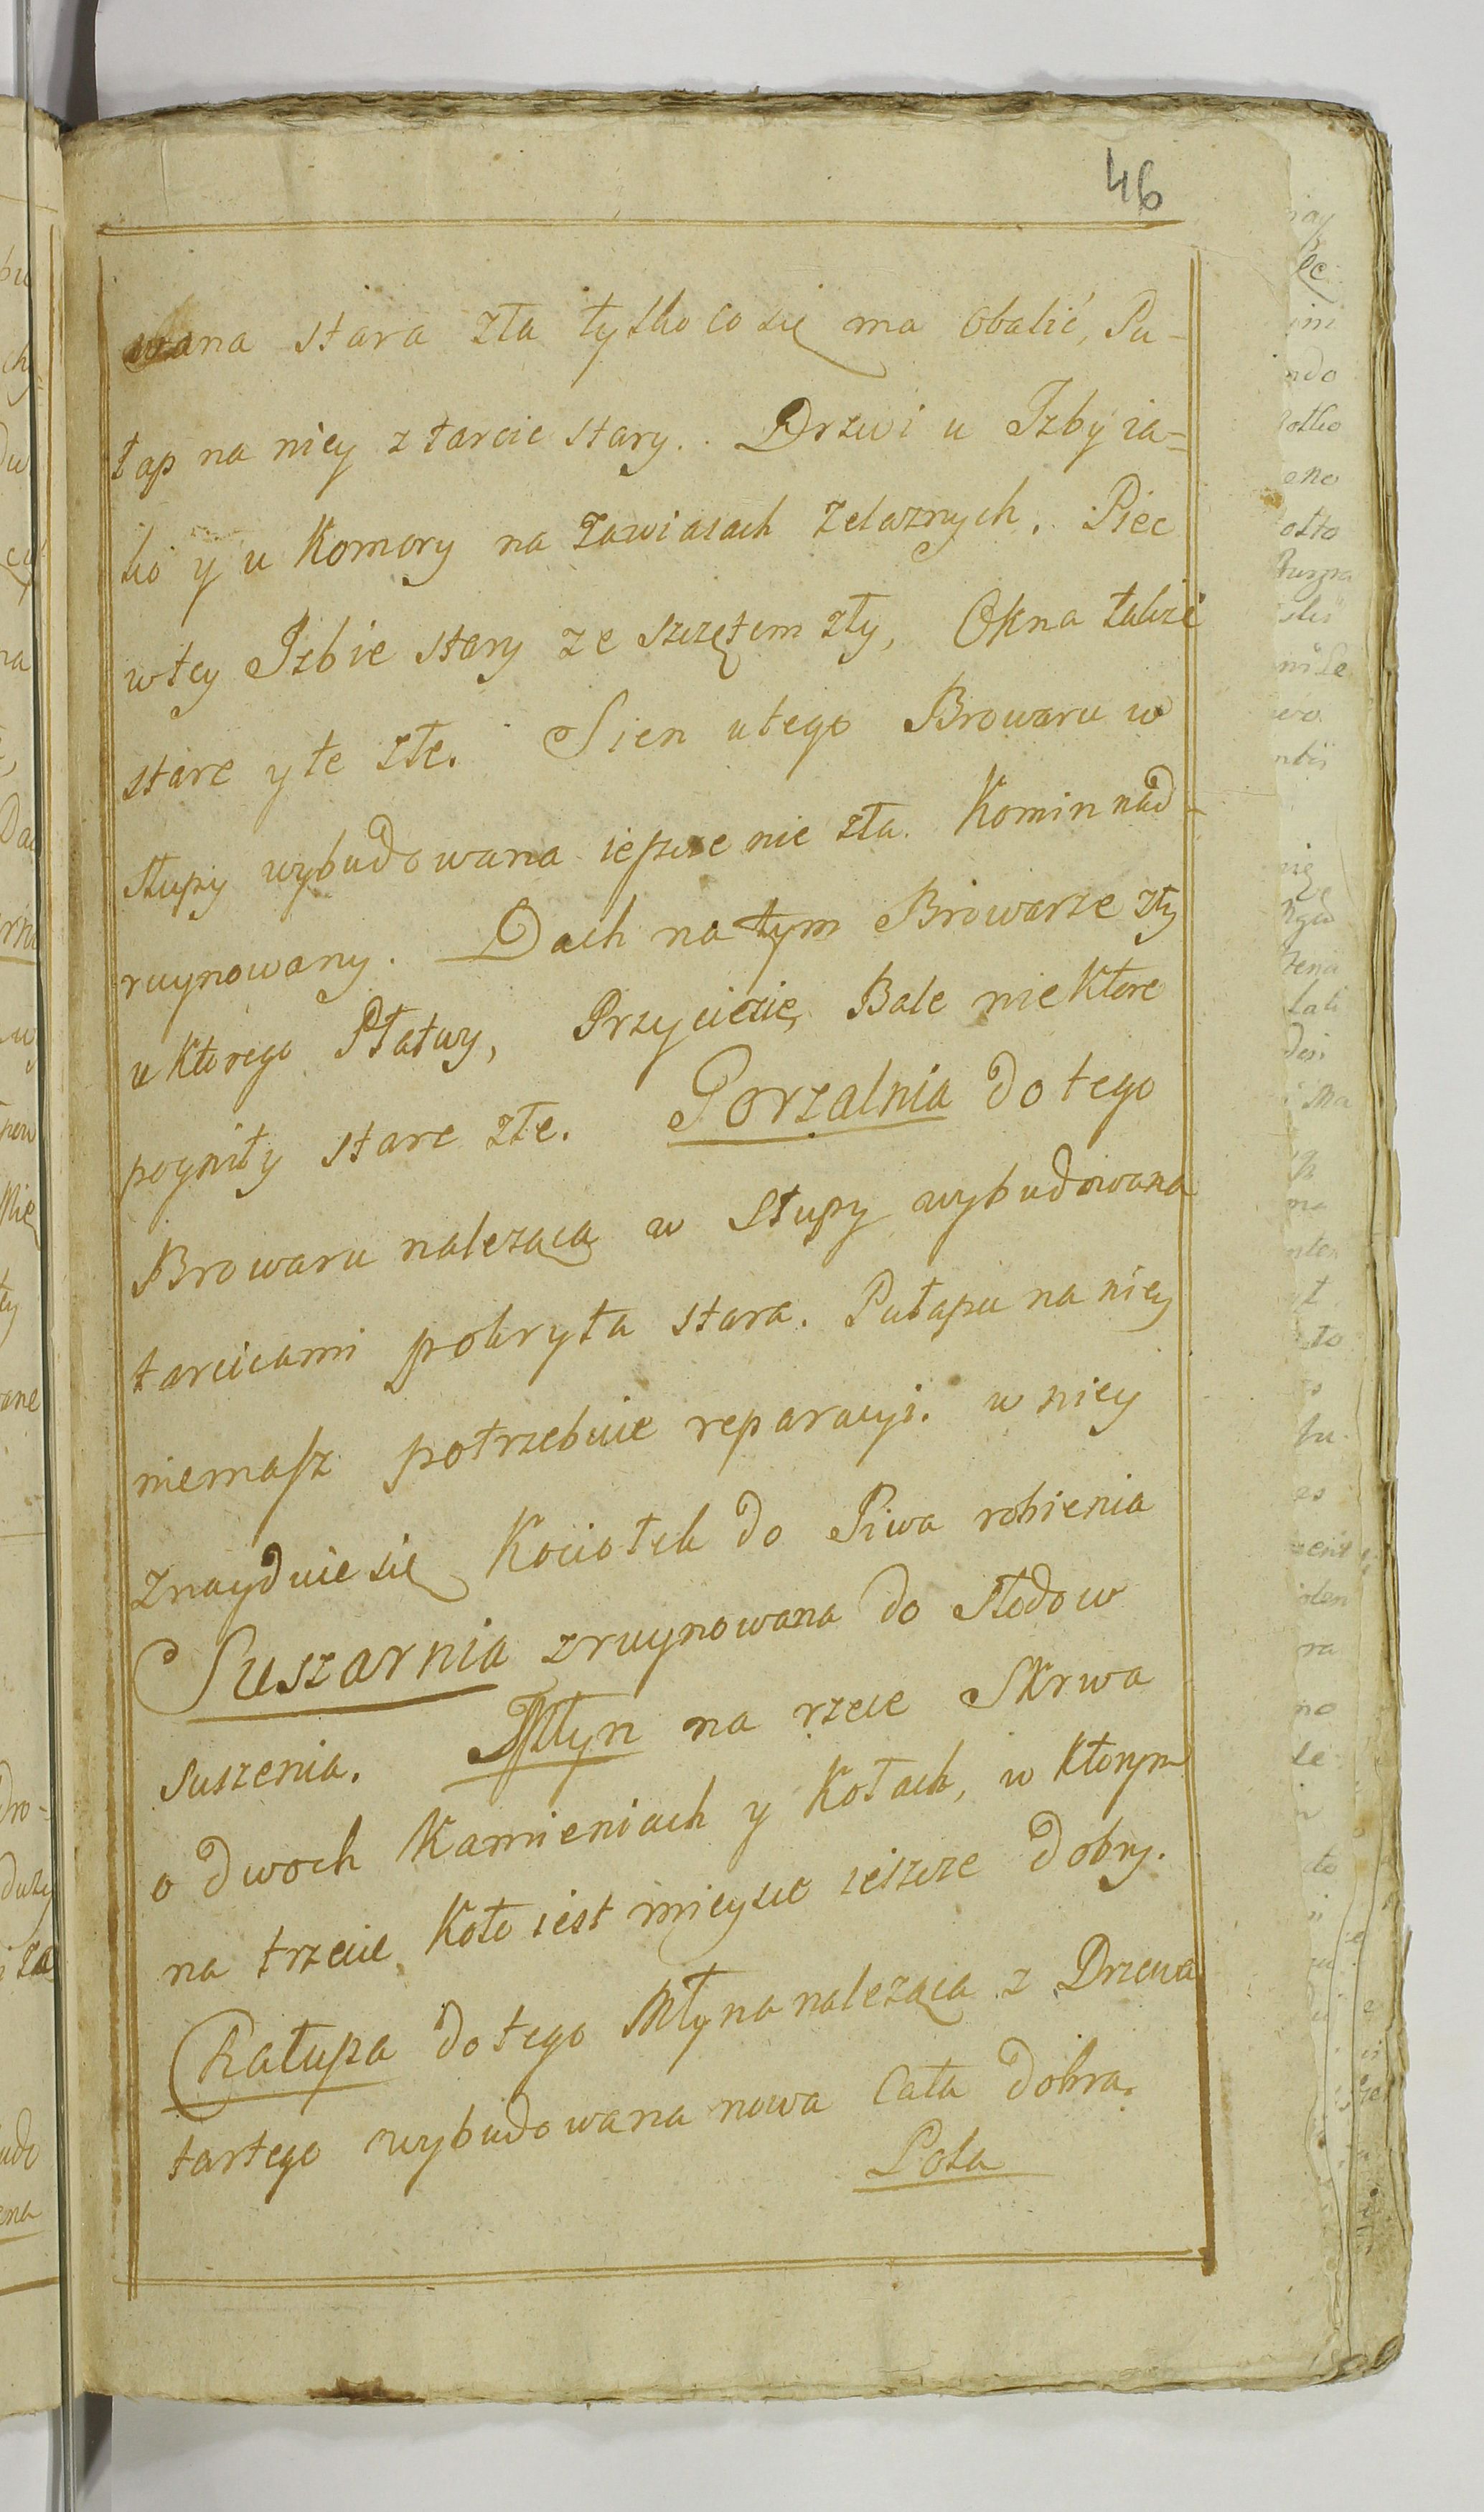 46
wana stara zła tylko co się ma obalić, Pu-
łap na niey z tarcic stary. Drzwi u Izby ia=
ko y u Komory na zawiasach żelaznych. Piec
w tey Izbie stary ze szczętem zły, Okna także
stare y te złe. Sien u tego Browaru w
słupy wybudowana ieszcze nie zła. Komin nad-
ruynowany. Dach na tym Browarze zły
u ktorego Płatwy, Przyciesie, Bale nie Ktore
pogniły stare złe. Gorzalnia do tego
Browaru należąca w Słupy wybudowana
tarcicami pokryta stara. Pułapu na niey
niemasz potrzebuie reparacyi. w niey
znayduie się Kociołek do Piwa robienia
Suszarnia zruynowana do Słodow
suszenia. Młyn na rzece Skrwa
o dwoch Kamieniach y Kołach, w Ktorym
na trzecie Koło iest mieysce ieszcze dobry.
Chałupa do tego Młyna należąca z Drzewa
tartego wybudowana nowa cała dobra.
Pola